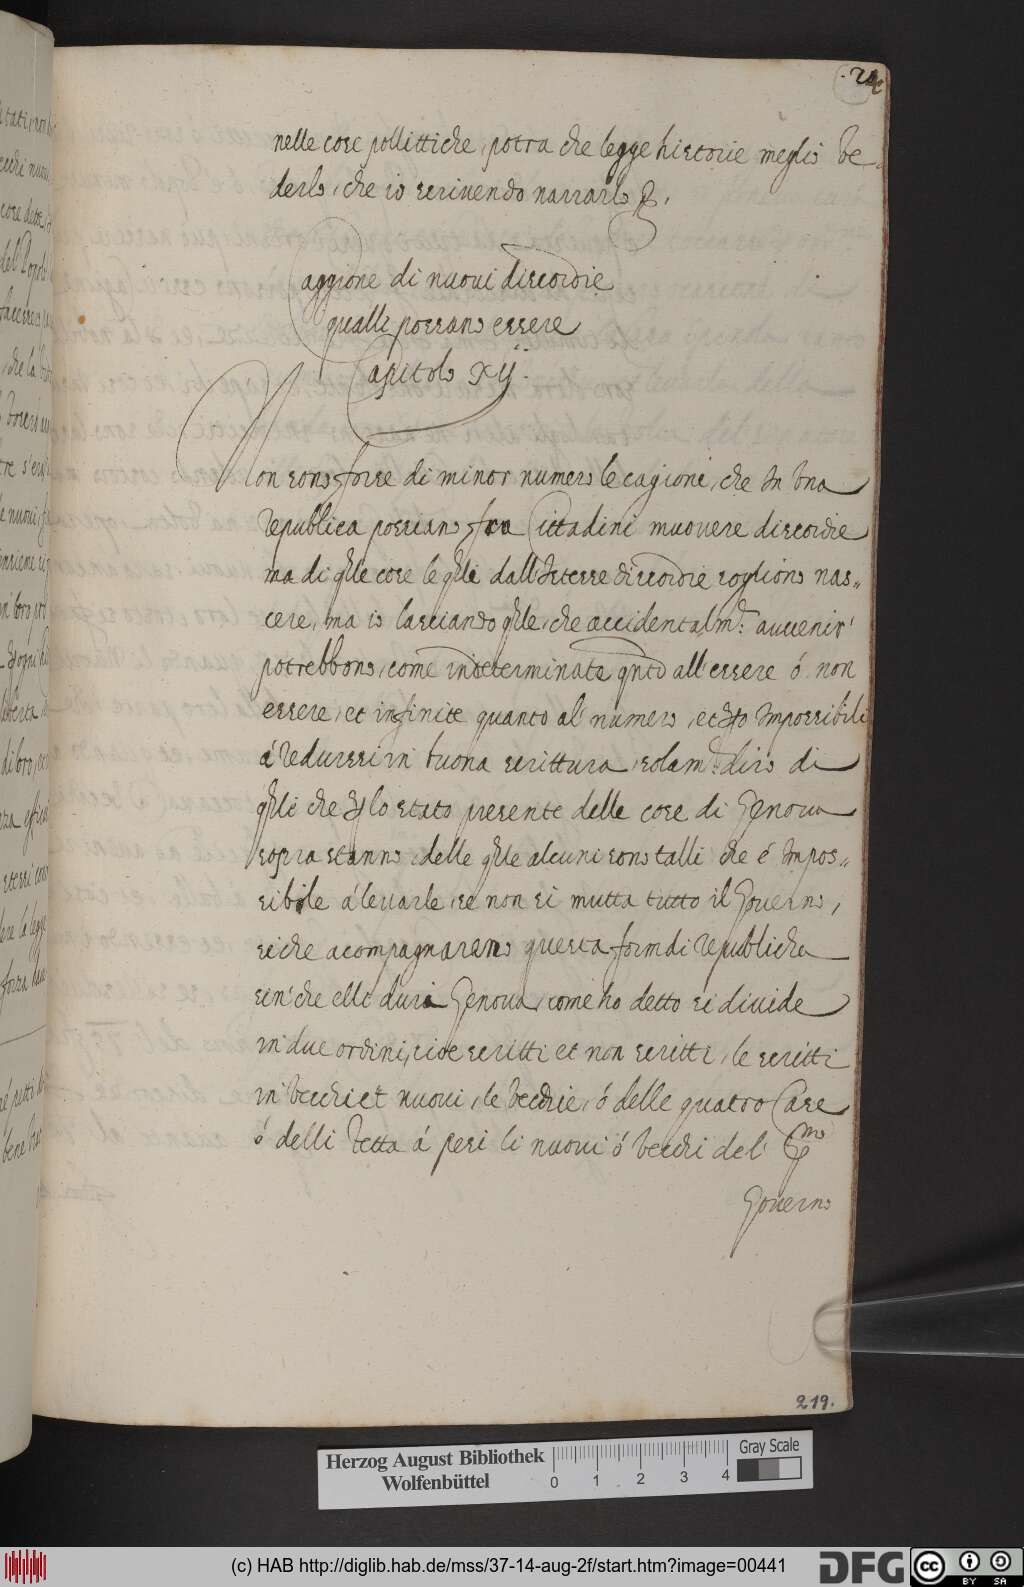 nelle cose pollittiche, potra che legge historie meglio ve-
derlo, che io scrivendo narrarlo
Caggione di nuovi discordie
qualli possano essere
Capitolo xij.
Non sono forse di minor numero le cagioni, che In una
republica possiano fra Cittadini muovere discordie
ma di qlle cose le qlli dall'Istesse discordie sogliono nas„
cere, ma io lasciando qlle, che accidentalmte. avvenir'
potrebbono, come indeterminate qnto all'essere ó non
essere, et infinite quanto al numero, et Impossibili
á redursi in buona scrittura, solamte. dirò di
qlli che lo stato presente delle cose di Genova
sopra stanno, delle qlle alcuni sono talli che é Impos„
sibile á levarle, se non si mutta tutto il Governo,
siche acompagnarano questa form di republicha
sin'che elli duri Genova, come ho detto si divide
in due ordini, cioe scritti et non scritti, le scritti
in vecchi et nuovi, le vecchie, ó delle quatro Case
ó delli Tetta á pesi li nuovi ó vecchi del'
Governo
219.
Herzog August Bibliothek
Wolfenbüttel
0 1 2 3 4
Gray Scale
(c) HAB http://diglib.hab.de/mss/37-14-aug-2f/start.htm?image=00441
DFG
cc BY SA